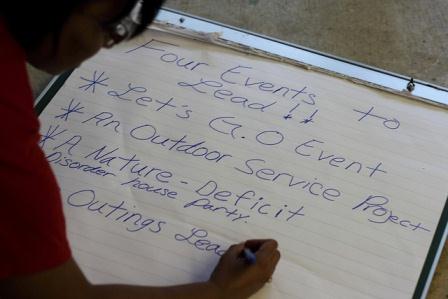 Four Events to
Lead!!
* Let's G.O Event
* An Outdoor Service Project
* A Nature-Deficit
Disorder house party.
Outings Lea